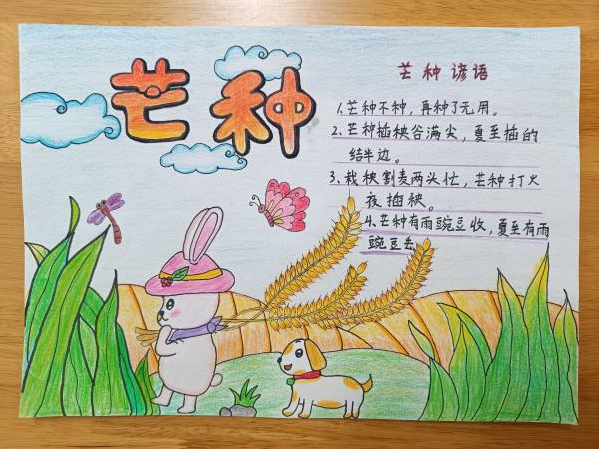 芒种
芒种谚语
1.芒种不种,再种了无用。
2.芒种插秧谷满尖,夏至插的
结半边。
3.栽秧割麦两头忙,芒种打火
夜插秧。
4.芒种有雨豌豆收,夏至有雨
豌豆丢